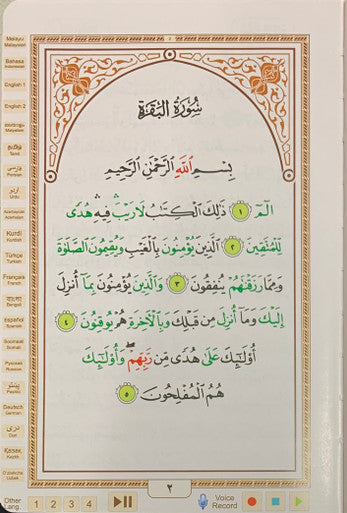 سُورَةُ البَقَرَةِ
بِسْمِ اللَّهِ الرَّحْمَٰنِ الرَّحِيمِ
الٓمٓ ١ ذَٰلِكَ الْكِتَٰبُ لَا رَيْبَ ۛ فِيهِ ۛ هُدًى
لِّلْمُتَّقِينَ ٢ الَّذِينَ يُؤْمِنُونَ بِالْغَيْبِ وَيُقِيمُونَ الصَّلَوٰةَ
وَمِمَّا رَزَقْنَٰهُمْ يُنفِقُونَ ٣ وَالَّذِينَ يُؤْمِنُونَ بِمَآ أُنزِلَ
إِلَيْكَ وَمَآ أُنزِلَ مِن قَبْلِكَ وَبِالْءَاخِرَةِ هُمْ يُوقِنُونَ ٤
أُو۟لَٰٓئِكَ عَلَىٰ هُدًى مِّن رَّبِّهِمْ ۖ وَأُو۟لَٰٓئِكَ
هُمُ الْمُفْلِحُونَ ٥
٢
Melayu
Malaysian
Bahasa
Indonesian
English 1
English 2
Malayalam
தமிழ்
Tamil
فارسی
Persian
اردو
Urdu
Azərbaycan
Azerbaijani
Kurdî
Kurdish
Türkçe
Turkish
Français
French
বাংলা
Bengali
Español
Spanish
Soomaali
Somali
Русский
Russian
پښتو
Pashto
Deutsch
German
دری
Dari
Қазақ
Kazakh
O'zbekcha
Uzbek
Other Lang.
1 2 3 4
Voice Record